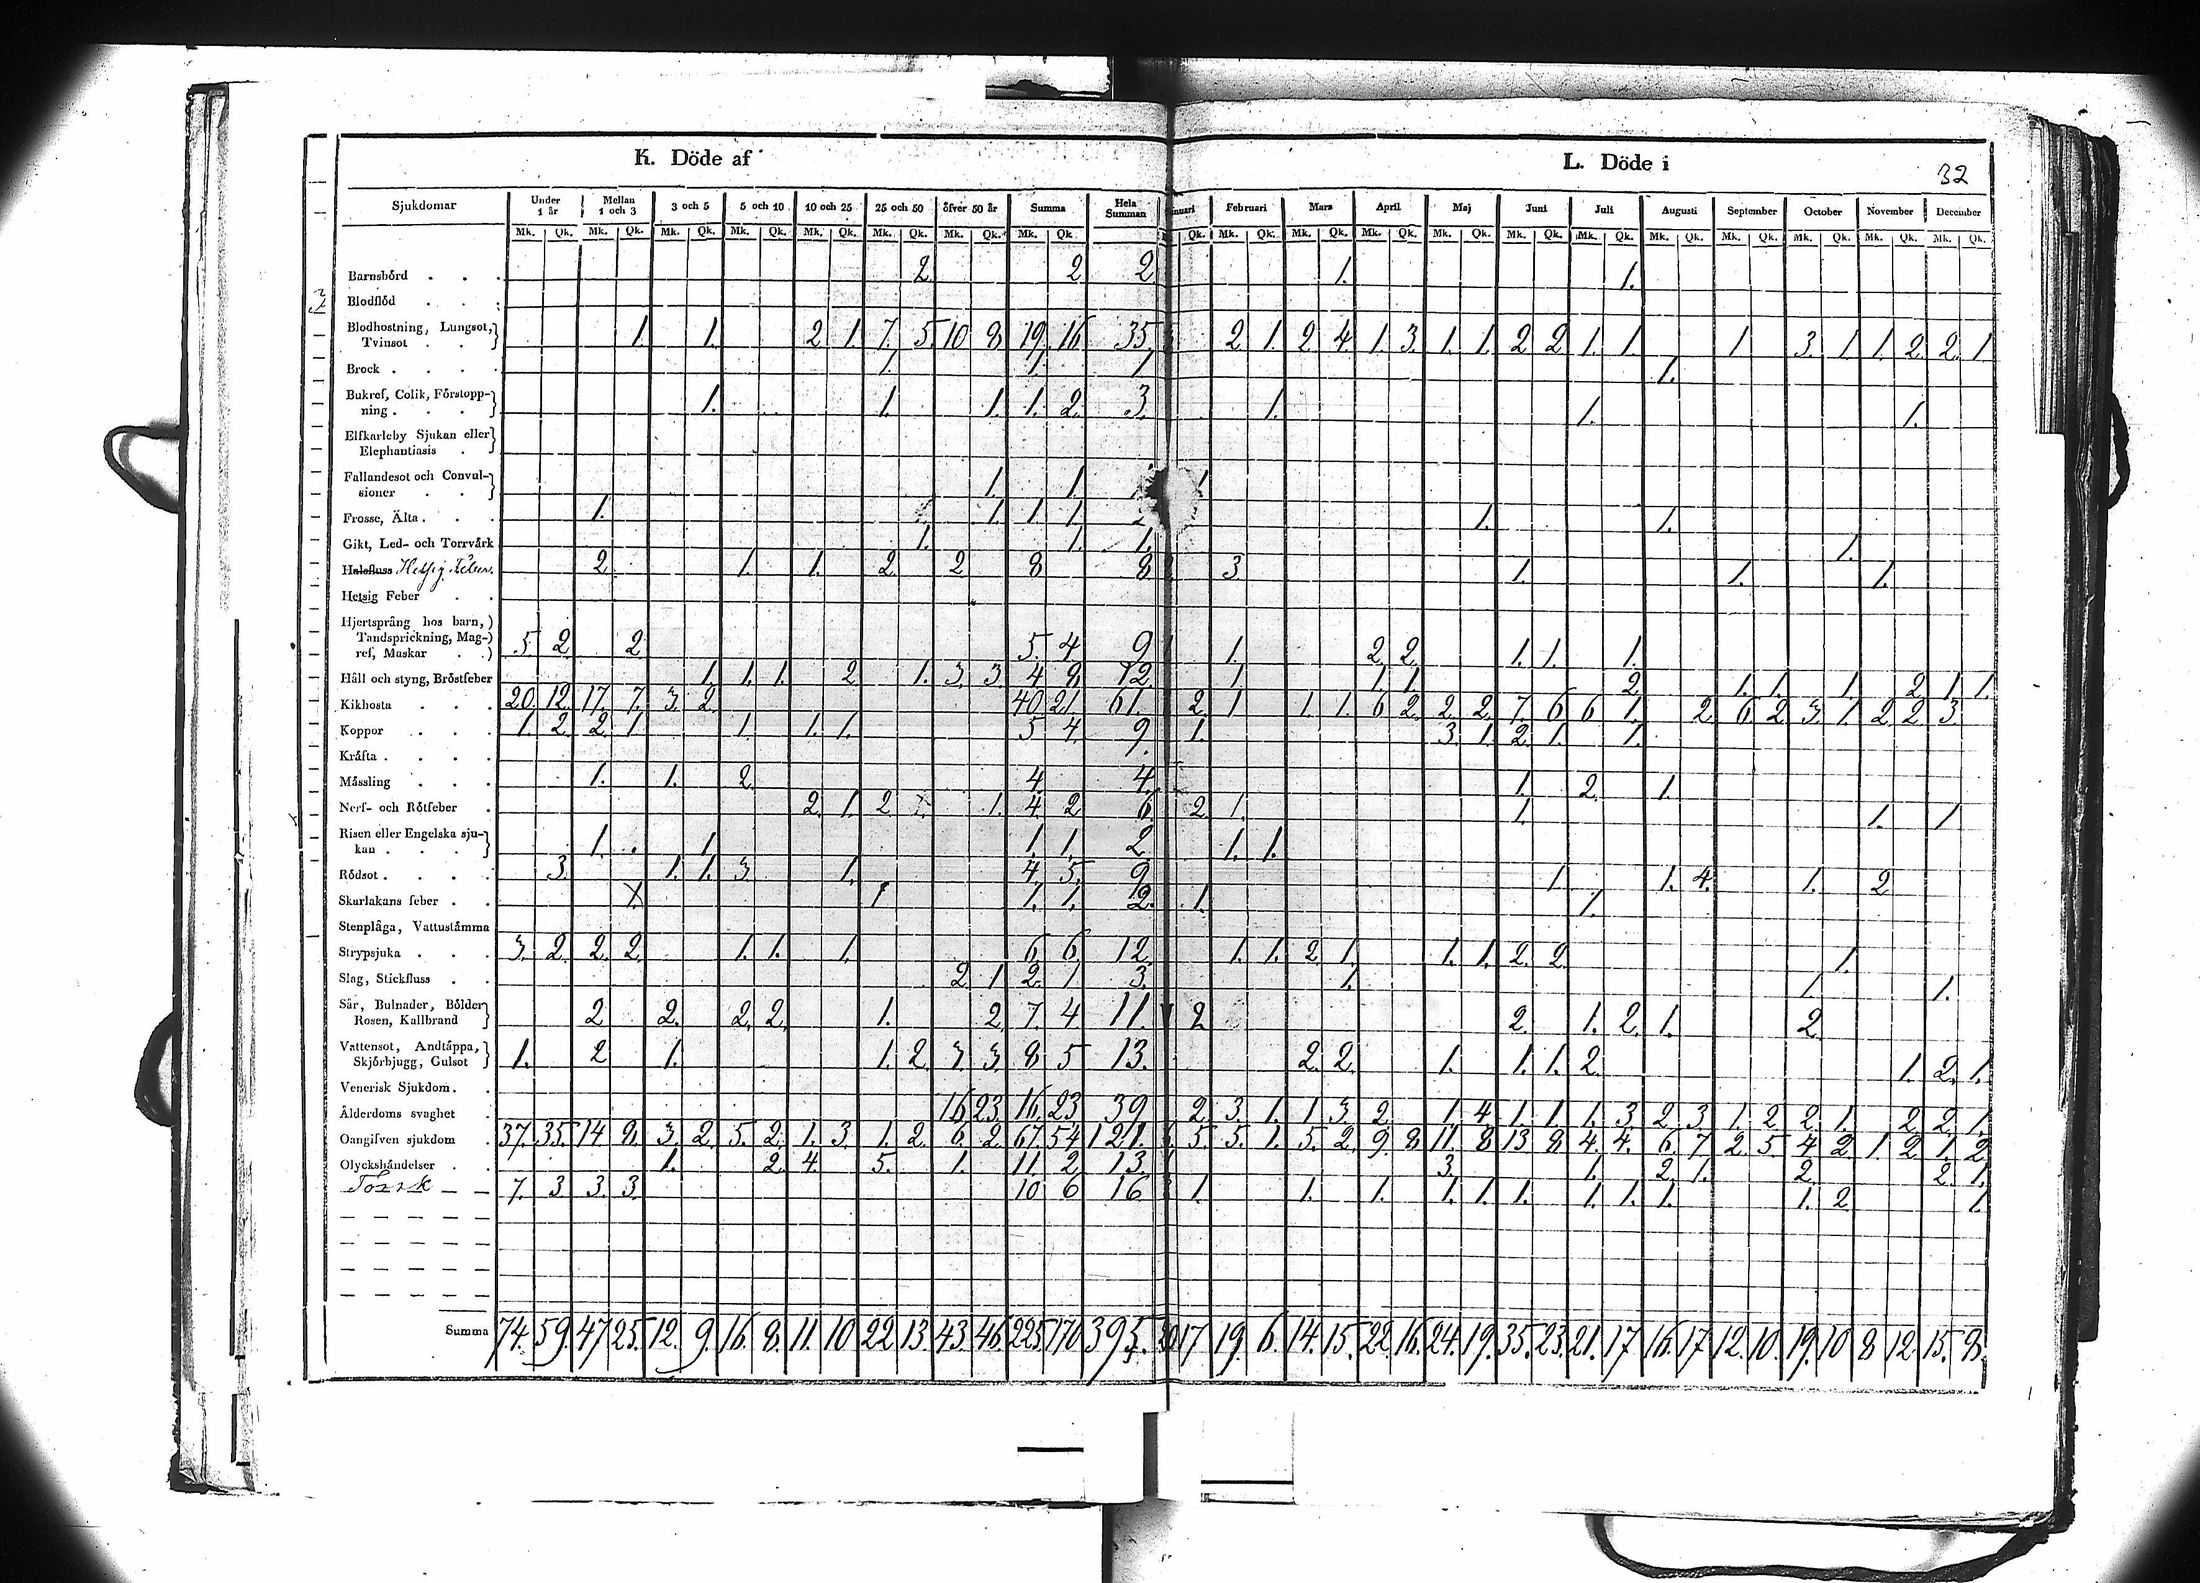 K. Döde af
L. Döde i
32
Sjukdomar Under 1 år Mellan 1 och 3 3 och 5 5 och 10 10 och 25 25 och 50 öfver 50 år Summa Hela Summan Februari Mars April Maj Juni Juli Augusti September October November December
Mk. Qk. Mk. Qk. Mk. Qk. Mk. Qk. Mk. Qk. Mk. Qk. Mk. Qk. Mk. Qk Qk. Mk. Qk. Mk. Qk. Mk. Qk. Mk. Qk. Mk. Qk. Mk. Qk. Mk. Qk. Mk. Qk. Mk. Qk. Mk. Qk. Mk. Qk.
Barnsbörd . . . 2. 2 2 1. 1.
Blodflöd . . .
Blodhostning, Lungsot,
Tvinsot . . . 1. 1. 2 1. 7. 5. 10 8 19. 16. 35. 2 1. 2 4. 1. 3. 1. 1. 2 2 1. 1. 1 3. 1 1. 2 2. 1
Brock . . . . 1. 1. 1 1.
Bukref, Colik, Förstopp-
ning . . . . 1. 1. 1. 1. 2. 3. 1. 1. 1.
Elfkarleby Sjukan eller
Elephantiasis .
Fallandesot och Convul-
sioner . . . 1. 1
Frosse, Älta . . . 1. 1. 1. 1. 1. 1.
Gikt, Led- och Torrvärk 1. 1. 1. 1.
Halsfluss Hetsig Feber. 2. 1. 1. 2 2 8 8 3 1. 1. 1.
Hetsig Feber . .
Hjertsprång hos barn,
Tandsprickning, Mag-
ref, Maskar . . 5. 2. 2. 5. 4 9 1. 2. 2. 1. 1. 1.
Håll och styng, Bröstfeber 1. 1. 1. 2. 1. 3. 3. 4 8 12. 1 1. 1 2. 1. 1. 1. 2 1. 1.
Kikhosta . . . 20. 12. 17. 7. 3. 2. 40. 21. 61. 2. 1 1. 1. 6 2. 2. 2. 7. 6 6 1. 2. 6 2 3. 1 2 2 3.
Koppor . . . 1. 2. 2. 1 1. 1. 1. 5 4. 9. 1. 3. 1. 2. 1. 1.
Kräfta . . . .
Mässling . . . 1. 1. 2. 4. 4. 1. 2. 1.
Nerf- och Rötfeber . 2. 1. 2. 1. 4. 2 6. 2. 1. 1. 1. 1
Risen eller Engelska sju-
kan . . . . 1. 1 1. 1. 2. 1. 1.
Rödsot . . . . 3. 1. 1. 3. 1. 4. 5. 9 1 1. 4. 1. 2
Skarlakans feber . . 1. 1 1. 1. 2. 1. 1.
Stenplåga, Vattustämma
Strypsjuka . . . 3. 2. 2. 2. 1. 1. 1. 6. 6. 12. 1. 1. 2. 1. 1. 1. 2. 2. 1.
Slag, Stickfluss . . 2. 1 2. 1 3. 1. 1. 1.
Sår, Bulnader, Bölder
Rosen, Kallbrand 2 2. 2. 2. 1. 2. 7. 4 11. 2 2. 1. 2. 1. 2.
Vattensot, Andtäppa,
Skjörbjugg, Gulsot 1. 2 1. 1. 2. 3. 3. 8 5 13. 2. 2. 1. 1. 1. 2. 1. 2. 1.
Venerisk Sjukdom . .
Ålderdoms svaghet . 16. 23 16. 23. 39 2. 3. 1. 1. 3 2. 1. 4 1. 1. 1. 3. 2. 3. 1. 2. 2. 1. 2. 2. 1.
Oangifven sjukdom . 37. 35. 14 8. 3. 2. 5. 2. 1. 3. 1. 2. 6. 2. 67. 54 121. 5. 5. 1. 5. 2. 9. 8 11. 8 13 8 4. 4. 6. 7 2. 5 4 2 1. 2. 1. 2.
Olyckshändelser . . 1. 2. 4. 5. 1. 11. 2. 13. 3. 1. 2. 1. 2. 2. 1.
Torsk 7. 3 3. 3. 10 6 16 1. 1. 1. 1. 1. 1. 1. 1. 1. 1. 2 1.
Summa 74. 59. 47 25. 12. 9. 16. 8. 11. 10 22 13. 43. 46. 225 170 395. 17 19. 6. 14. 15. 22. 16. 24. 19. 35. 23. 21. 17 16. 17 12. 10. 19. 10 8 12. 15. 8.